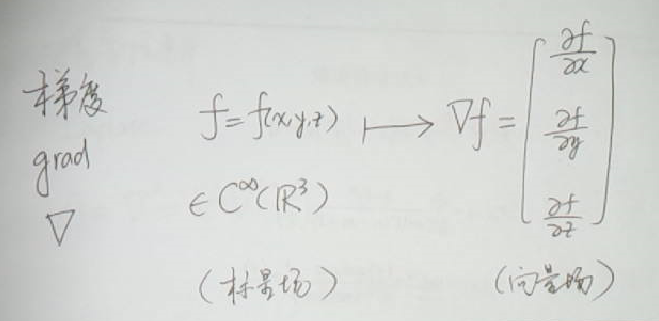 梯度
grad
∇
f = f(x,y,z) ⟼ ∇f = [∂f/∂x ∂f/∂y ∂f/∂z]
∈ C^∞(ℝ³)
(标量场) (向量场)